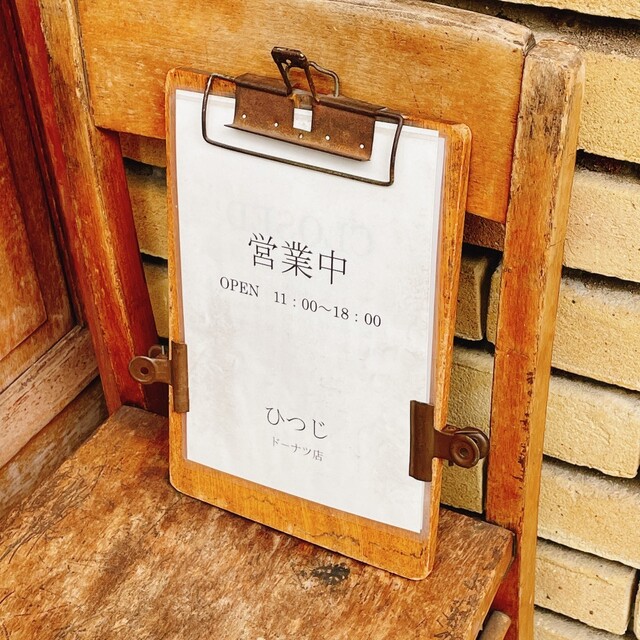 CLOSED
営業中
OPEN 11:00〜18:00
ひつじ
ドーナツ店